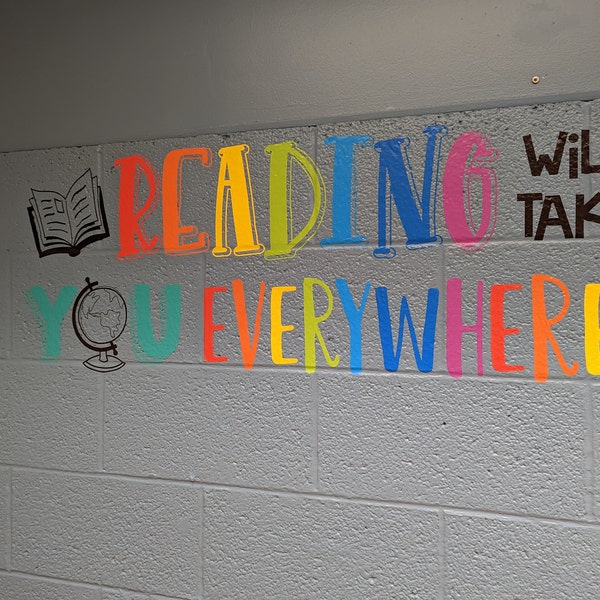 READING WiL
TAK
YOU EVERYWHERE